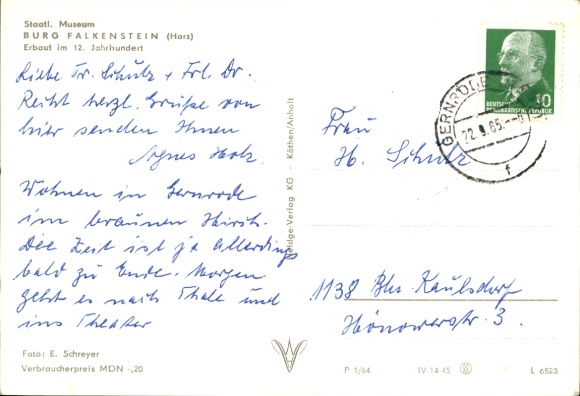 Staatl. Museum
BURG FALKENSTEIN (Harz)
Erbaut im 12. Jahrhundert
Liebe Fr. Schulz + Frl. Dr.
Recht herzl. Grüße von
hier senden Ihnen
Agnes
Wohnen in Gernrode
im braunen Hirsch.
Die Zeit ist ja allerdings
bald zu Ende. Morgen
geht es nach Thale und
ins Theater
Foto: E. Schreyer
Verbraucherpreis MDN -,20
-Verlag KG · Köthen/Anhalt
DEUTSCHE
DEMOKRATISCHE REPUBLIK
10
GERNRODE
22.9.65
f
Frau
H. Schulz
1138 Bln Kaulsdorf
Hönowerstr. 3.
P 1/64
IV-14-45
L 6523